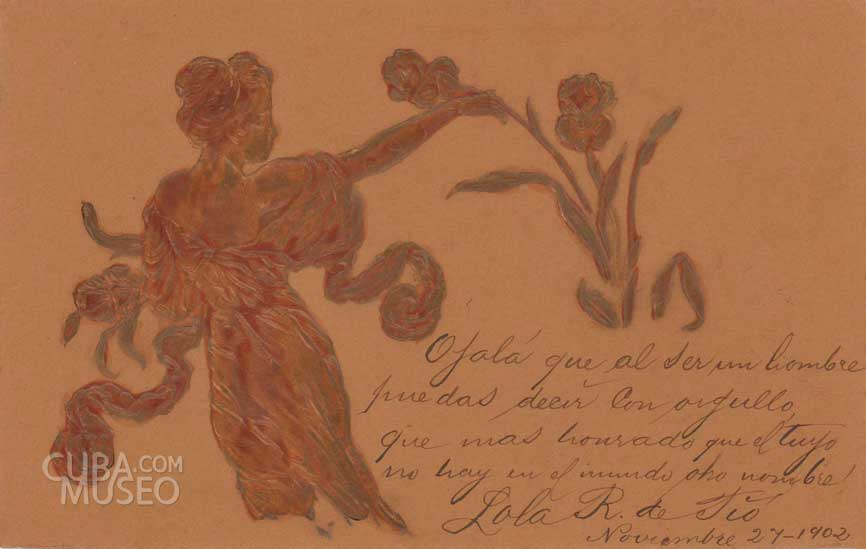 Ojalá que al ser un hombre
puedas decir con orgullo,
que mas honrado que el tuyo
no hay en el mundo otro nombre!
Lola R. de Tió
Noviembre 27-1902
CUBA.COM
MUSEO